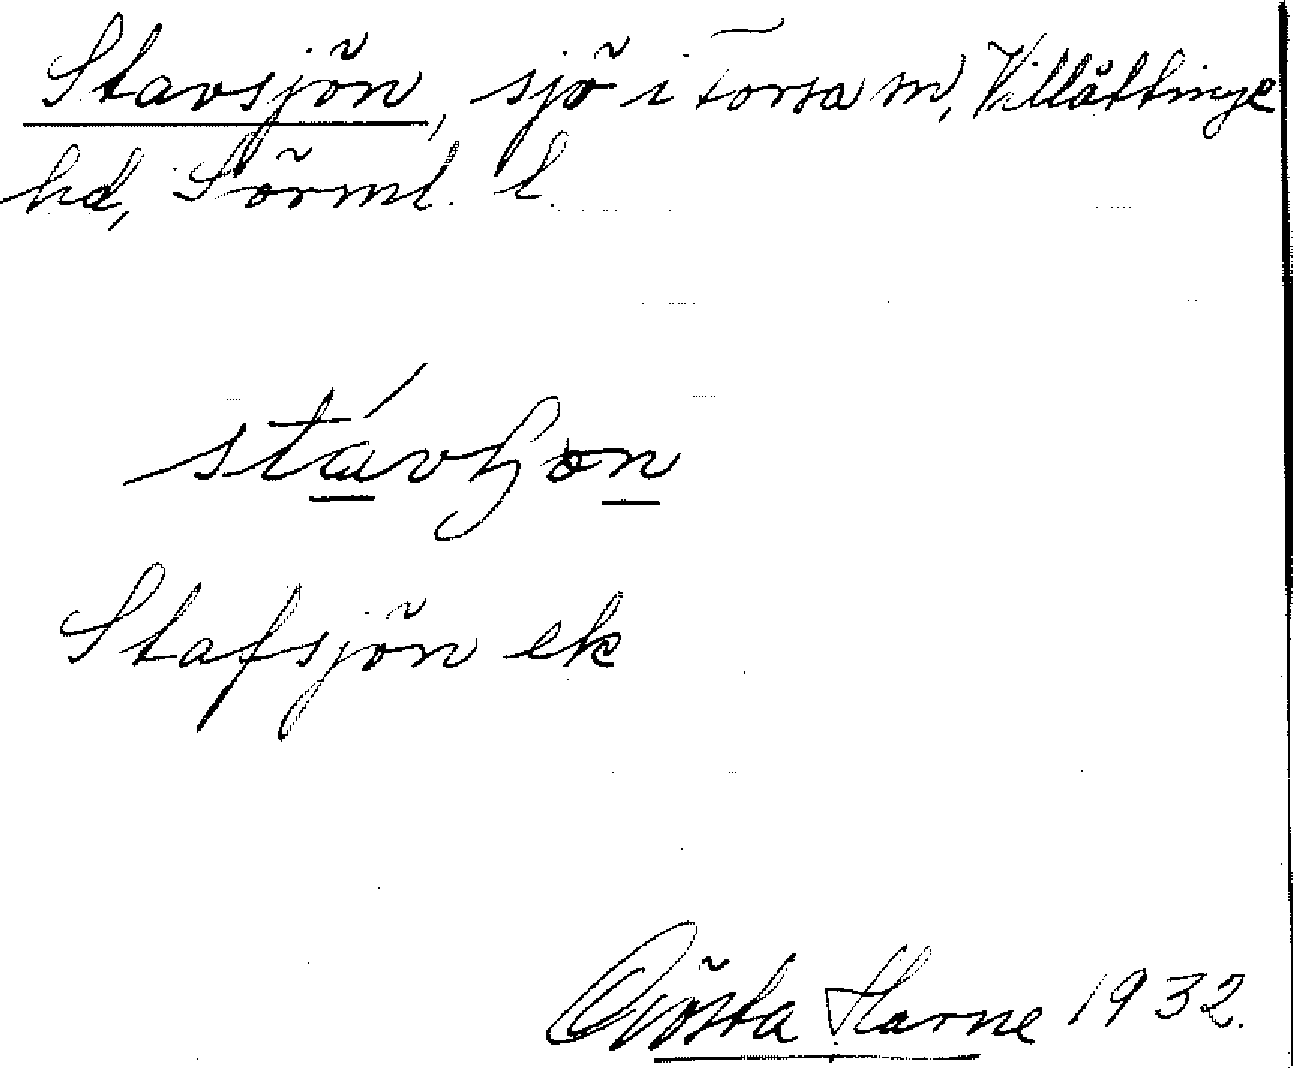 Stavsjön, sjö i Forsa sn, Villåttinge
hd, Sörml. l.
Stafsjön ek
Gösta Harne 1932.